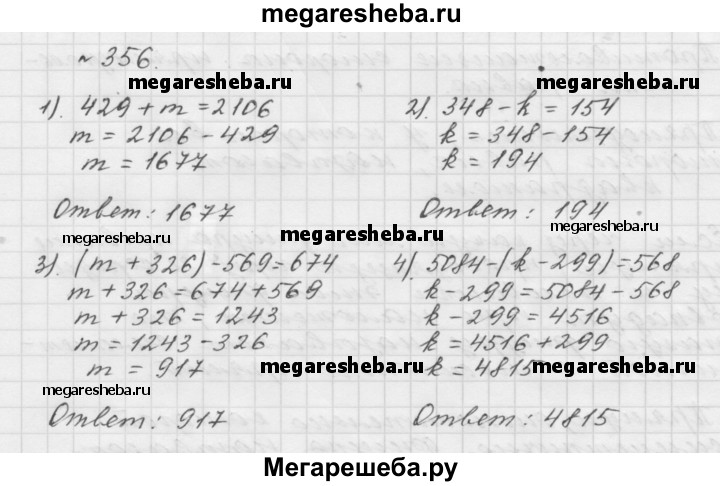 megaresheba.ru
№ 356.
megaresheba.ru
megaresheba.ru
1). 429 + m = 2106
m = 2106 - 429
m = 1677
Ответ: 1677
2). 348 - k = 154
k = 348 - 154
k = 194
Ответ: 194
megaresheba.ru
megaresheba.ru
3). (m + 326) - 569 = 674
m + 326 = 674 + 569
m + 326 = 1243
m = 1243 - 326
m = 917
megaresheba.ru
Ответ: 917
4). 5084 - (k - 299) = 568
k - 299 = 5084 - 568
k - 299 = 4516
k = 4516 + 299
k = 4815
megaresheba.ru
Ответ: 4815
Мегарешеба.ру